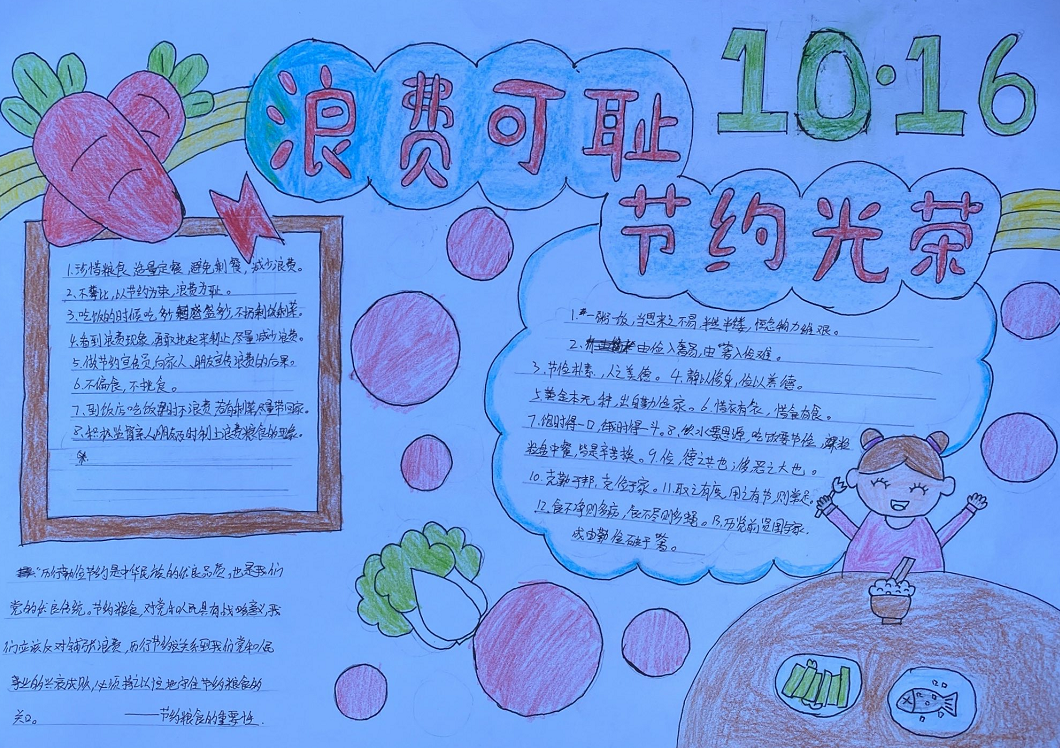 浪费可耻
10·16
节约光荣
1.珍惜粮食,适量定餐,避免剩餐,减少浪费。
2.不攀比,以节约为荣,浪费为耻。
3.吃饭的时候吃多少盛多少,不扔剩饭剩菜。
4.看到浪费现象,勇敢地起来制止,尽量减少浪费。
5.做节约宣传员,向家人、朋友宣传浪费的后果。
6.不偏食,不挑食。
7.到饭店吃饭时不浪费,若有剩菜尽量带回家。
8.积极监督亲人朋友及时制止浪费粮食的现象
厉行勤俭节约是中华民族的优良品质,也是我们
党的优良传统。节约粮食,对党和人民具有战略意义,我
们应该反对铺张浪费,厉行节约这关系到我们党和人民
事业的兴衰成败,必须持之以恒地守住节约粮食的
关口。 ——节约粮食的重要性.
1.一粥一饭,当思来之不易,半丝半缕,恒念物力维艰。
2.由俭入奢易,由奢入俭难。
3.节俭朴素,人之美德。4.静以修身,俭以养德。
5.黄金本无种,出自勤俭家。6.惜衣有衣,惜食有食。
7.饱时得一口,饿时得一斗。8.饮水要思源,吃饭要节俭,
盘中餐,皆是辛苦换。9.俭,德之共也;侈,恶之大也。
10.克勤于邦,克俭于家。11.取之有度,用之有节,则常足。
12.食不净则多病,食不尽则多殃。13.历览前贤国与家,
成由勤俭破于奢。